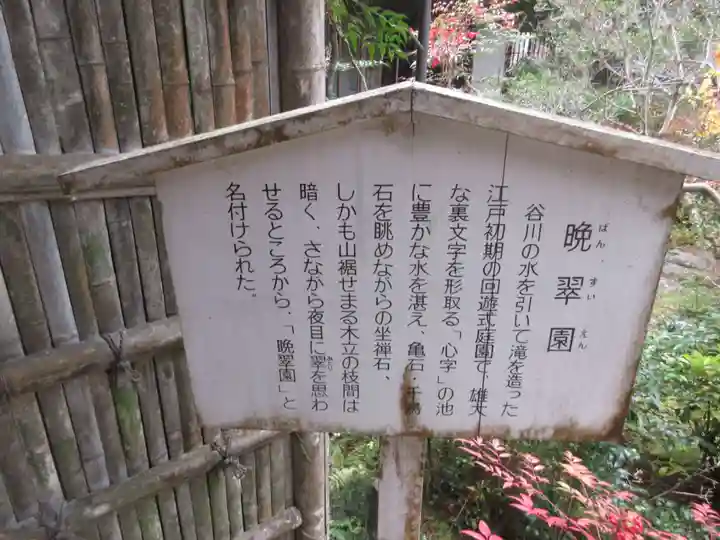 晩翠園
ばん・すい えん
谷川の水を引いて滝を造った
江戸初期の回遊式庭園で、雄大
な裏文字を形取る「心字」の池
に豊かな水を湛え、亀石・千鳥
石を眺めながらの坐禅石、
しかも山裾せまる木立の枝間は
暗く、さながら夜目に翠を思わ
みどり
せるところから、「晩翠園」と
名付けられた。